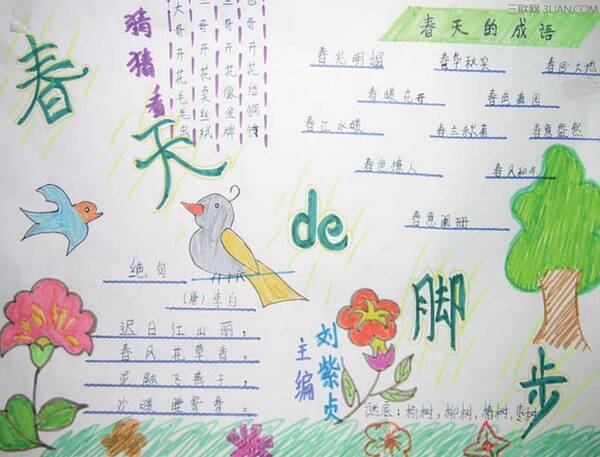 三联网 3LIAN.COM
春天de脚步
猜猜看
大哥开花毛毛虫
二哥开花卖丝绒
三哥开花像金牌
哥开花结铜锤
春天的成语
春光明媚 春华秋实 春回大地
春暖花开 春色满园
春江水暖 春兰秋菊 春意盎然
春色撩人 春风和
春意阑珊
绝句
(唐)李白
迟日江山丽,
春风花草香。
泥融飞燕子,
沙暖睡鸳鸯。
主编
刘紫贞
谜底:杨树,柳树,椿树,枣树